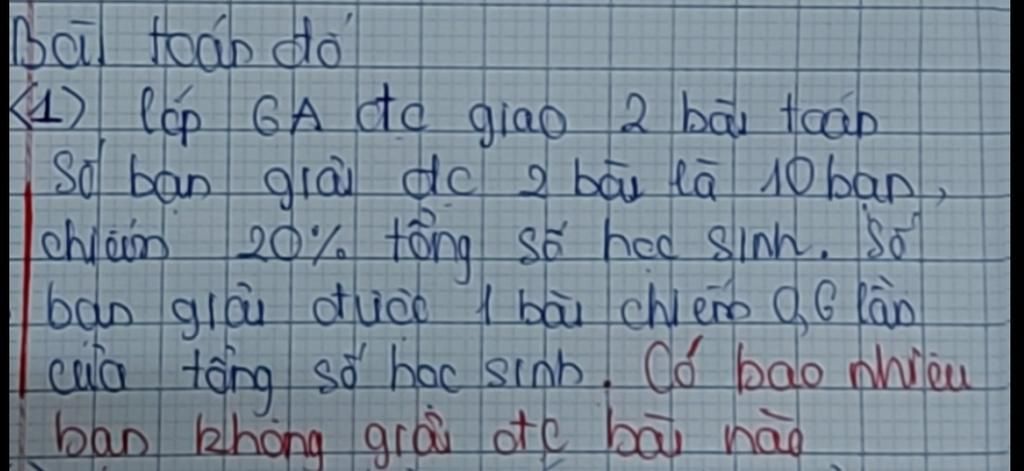 Bài toán đố
(1) lớp 6A đc giao 2 bài toán
Số bạn giải đc 2 bài là 10 bạn,
chiếm 20% tổng số học sinh. Số
bạn giải được 1 bài chiếm 0,6 lần
của tổng số học sinh. Có bao nhiêu
bạn không giải đc bài nào